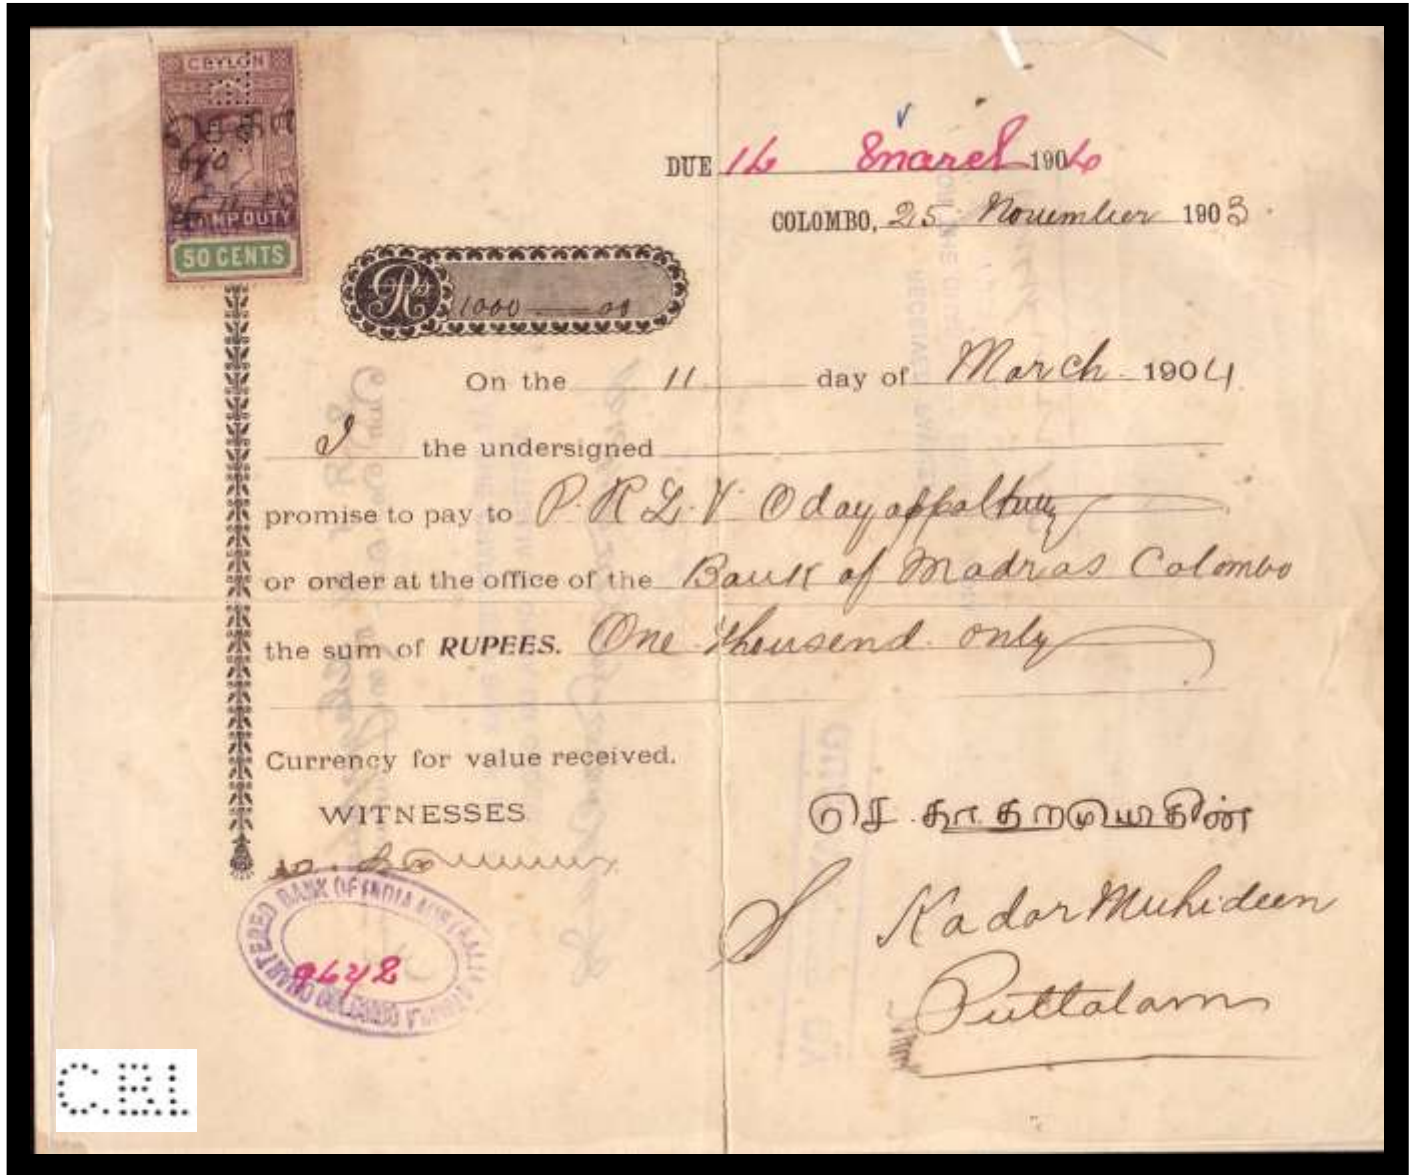 CEYLON
STAMP DUTY
50 CENTS
DUE 14 March 1904
COLOMBO, 25 November 1903
Rs 1000 — 00
On the 11 day of March 1904
I the undersigned
promise to pay to P. R. L. V. Odayappa
or order at the office of the Bank of Madras Colombo
the sum of RUPEES. One thousend only
Currency for value received.
WITNESSES
செ. காதறமுயெதீன்
CHARTERED BANK OF INDIA AUSTRALIA
COLOMBO
9642
S Kadar Muhideen
Puttalam
C.B.I.